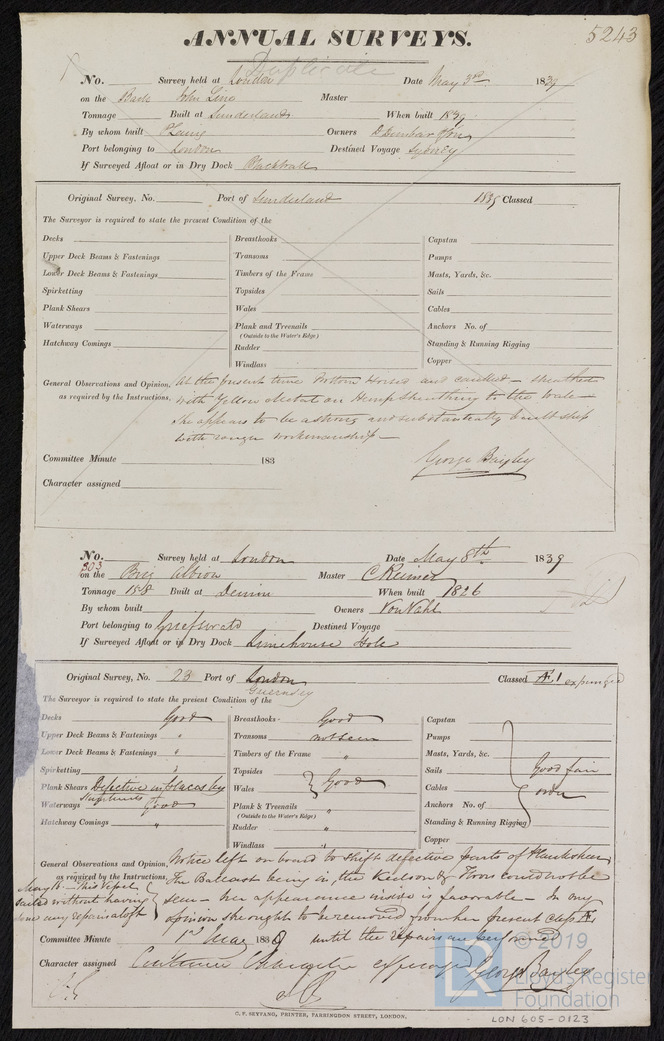 5243
ANNUAL SURVEYS.
Duplicate
No. Survey held at London Date May 3rd 1839
on the Bark John Line Master
Tonnage Built at Sunderland When built 1839
By whom built Laing Owners D Dunbar & Son
Port belonging to London Destined Voyage Sydney
If Surveyed Afloat or in Dry Dock Blackwall
Original Survey, No. Port of Sunderland 1839 Classed
The Surveyor is required to state the present Condition of the
Decks
Upper Deck Beams & Fastenings
Lower Deck Beams & Fastenings
Spirketting
Plank Shears
Waterways
Hatchway Comings
Breasthooks
Transoms
Timbers of the Frame
Topsides
Wales
Plank and Treenails
(Outside to the Water's Edge)
Rudder
Windlass
Capstan
Pumps
Masts, Yards, &c.
Sails
Cables
Anchors No. of
Standing & Running Rigging
Copper
General Observations and Opinion, At the present time bottom Horsed and caulked - sheathed
as required by the Instructions. with Yellow Metal on Hemp Sheathing to the Wale -
She appears to be a strong and substantially built ship
with rough workmanship -
Committee Minute 183
George Bayley
Character assigned
No. 303 Survey held at London Date May 8th 1839
on the Brig Albion Master C Reimer
Tonnage 158 Built at Demin When built 1826
By whom built Owners Von Vahl
Port belonging to Griefswald Destined Voyage
If Surveyed Afloat or in Dry Dock Limehouse Hole
Original Survey, No. 23 Port of London Classed Æ 1 expunged
Guernsey
The Surveyor is required to state the present Condition of the
Decks Good
Upper Deck Beams & Fastenings "
Lower Deck Beams & Fastenings "
Spirketting "
Plank Shears Defective in places by
Waterways Good
Hatchway Comings "
Breasthooks Good
Transoms not seen
Timbers of the Frame "
Topsides
Wales Good
Plank & Treenails "
(Outside to the Water's Edge)
Rudder "
Windlass "
Capstan
Pumps
Masts, Yards, &c.
Sails Good fair
Cables order
Anchors No. of
Standing & Running Rigging
Copper
General Observations and Opinion, Notice left on board to shift defective parts of Planksheer
as required by the Instructions. The Ballast being in, the Keelson & Floors could not be
seen - her appearance inside is favorable - In my
opinion she ought to be removed from her present class Æ
until the repairs are performed
May 15 - This Vessel
sailed without having
done any repairs aloft
Committee Minute 183
Character assigned Character expunged George Bayley
C. F. SEYFANG, PRINTER, FARRINGDON STREET, LONDON.
© 2019
Lloyd's Register
Foundation
LON 605-0123